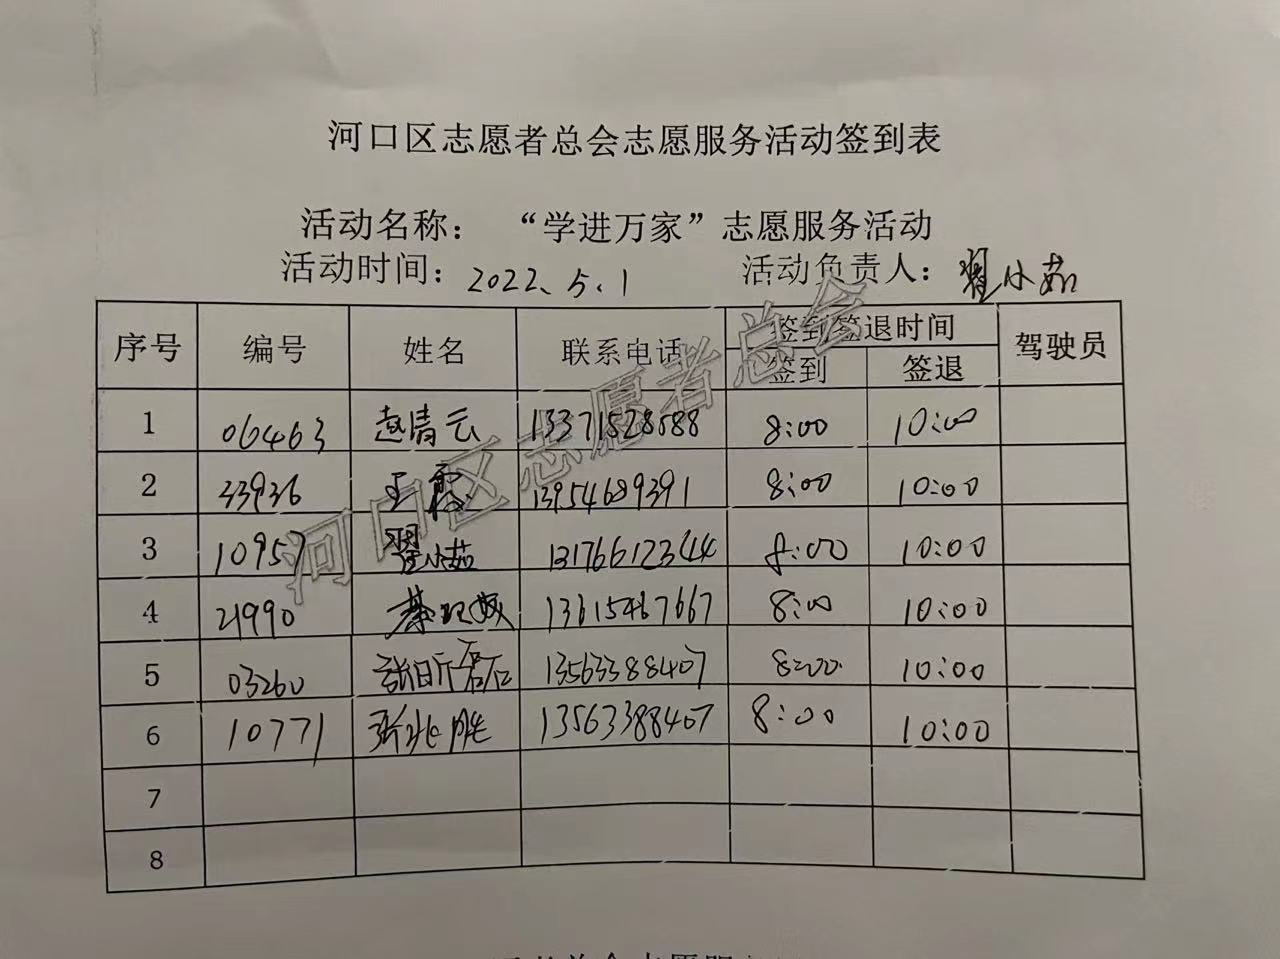 河口区志愿者总会志愿服务活动签到表
活动名称： “学进万家”志愿服务活动
活动时间：2022.5.1 活动负责人：翟小茹
序号 编号 姓名 联系电话 签到签退时间 驾驶员
签到 签退
1 06463 赵清云 13371528588 8:00 10:00
2 33936 王霞 13954689391 8:00 10:00
3 10957 翟小茹 13176612344 8:00 10:00
4 21990 13615467667 8:00 10:00
5 03260 张昕磊 13563388407 8:00 10:00
6 10771 张兆胜 13563388407 8:00 10:00
7
8
河口区志愿者总会